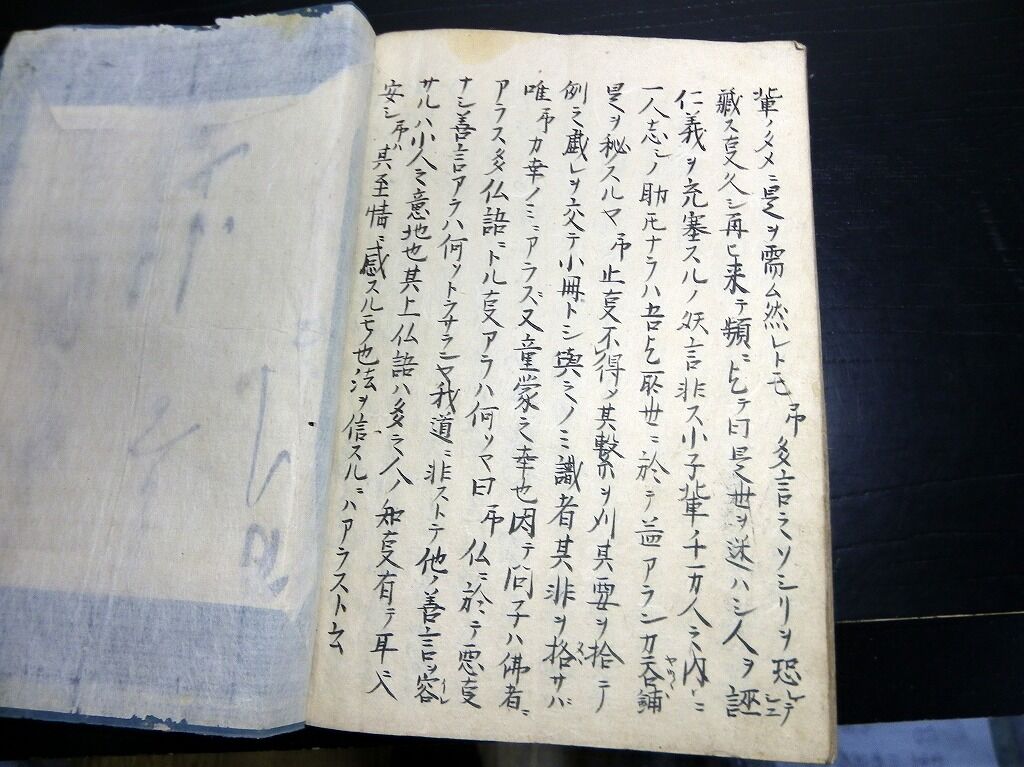 輩ノタメニ是ヲ需ム然レトモ吊多言之ソシリヲ恐レテ
藏ス叓久シ再ヒ来テ頻ニ乞テ曰是世ヲ迷ハシ人ヲ誣シエ
仁義ヲ充塞スルノ妖言非ス小子輩ノ千万人之内ニ
一人志シノ助モナラハ吾乞聖世ニ於テ益アランカ呑舗
是ヲ秘スルマ吊止叓不得〆其繋ヲ刈其要ヲ拾テ
例之戯レヲ交テ小冊トシ與之ノミ識者其非ヲ格サバ
唯吊カ幸ノミニアラズ又童蒙之幸也因テ問子ハ佛者ニ
アラス多仏語ニトル叓アラハ何ソマ曰吊仏ニ於テ悪叓
ナシ善言アラハ何ソトラサランヤ我道ニ非ストテ他ノ善言ヲ容
サルハ小人之意地也其上仏語ハ多之人ノ知叓有テ耳ニ入
安シ吊ハ其至情ニ感スルモ也法ヲ信スルニハアラスト云